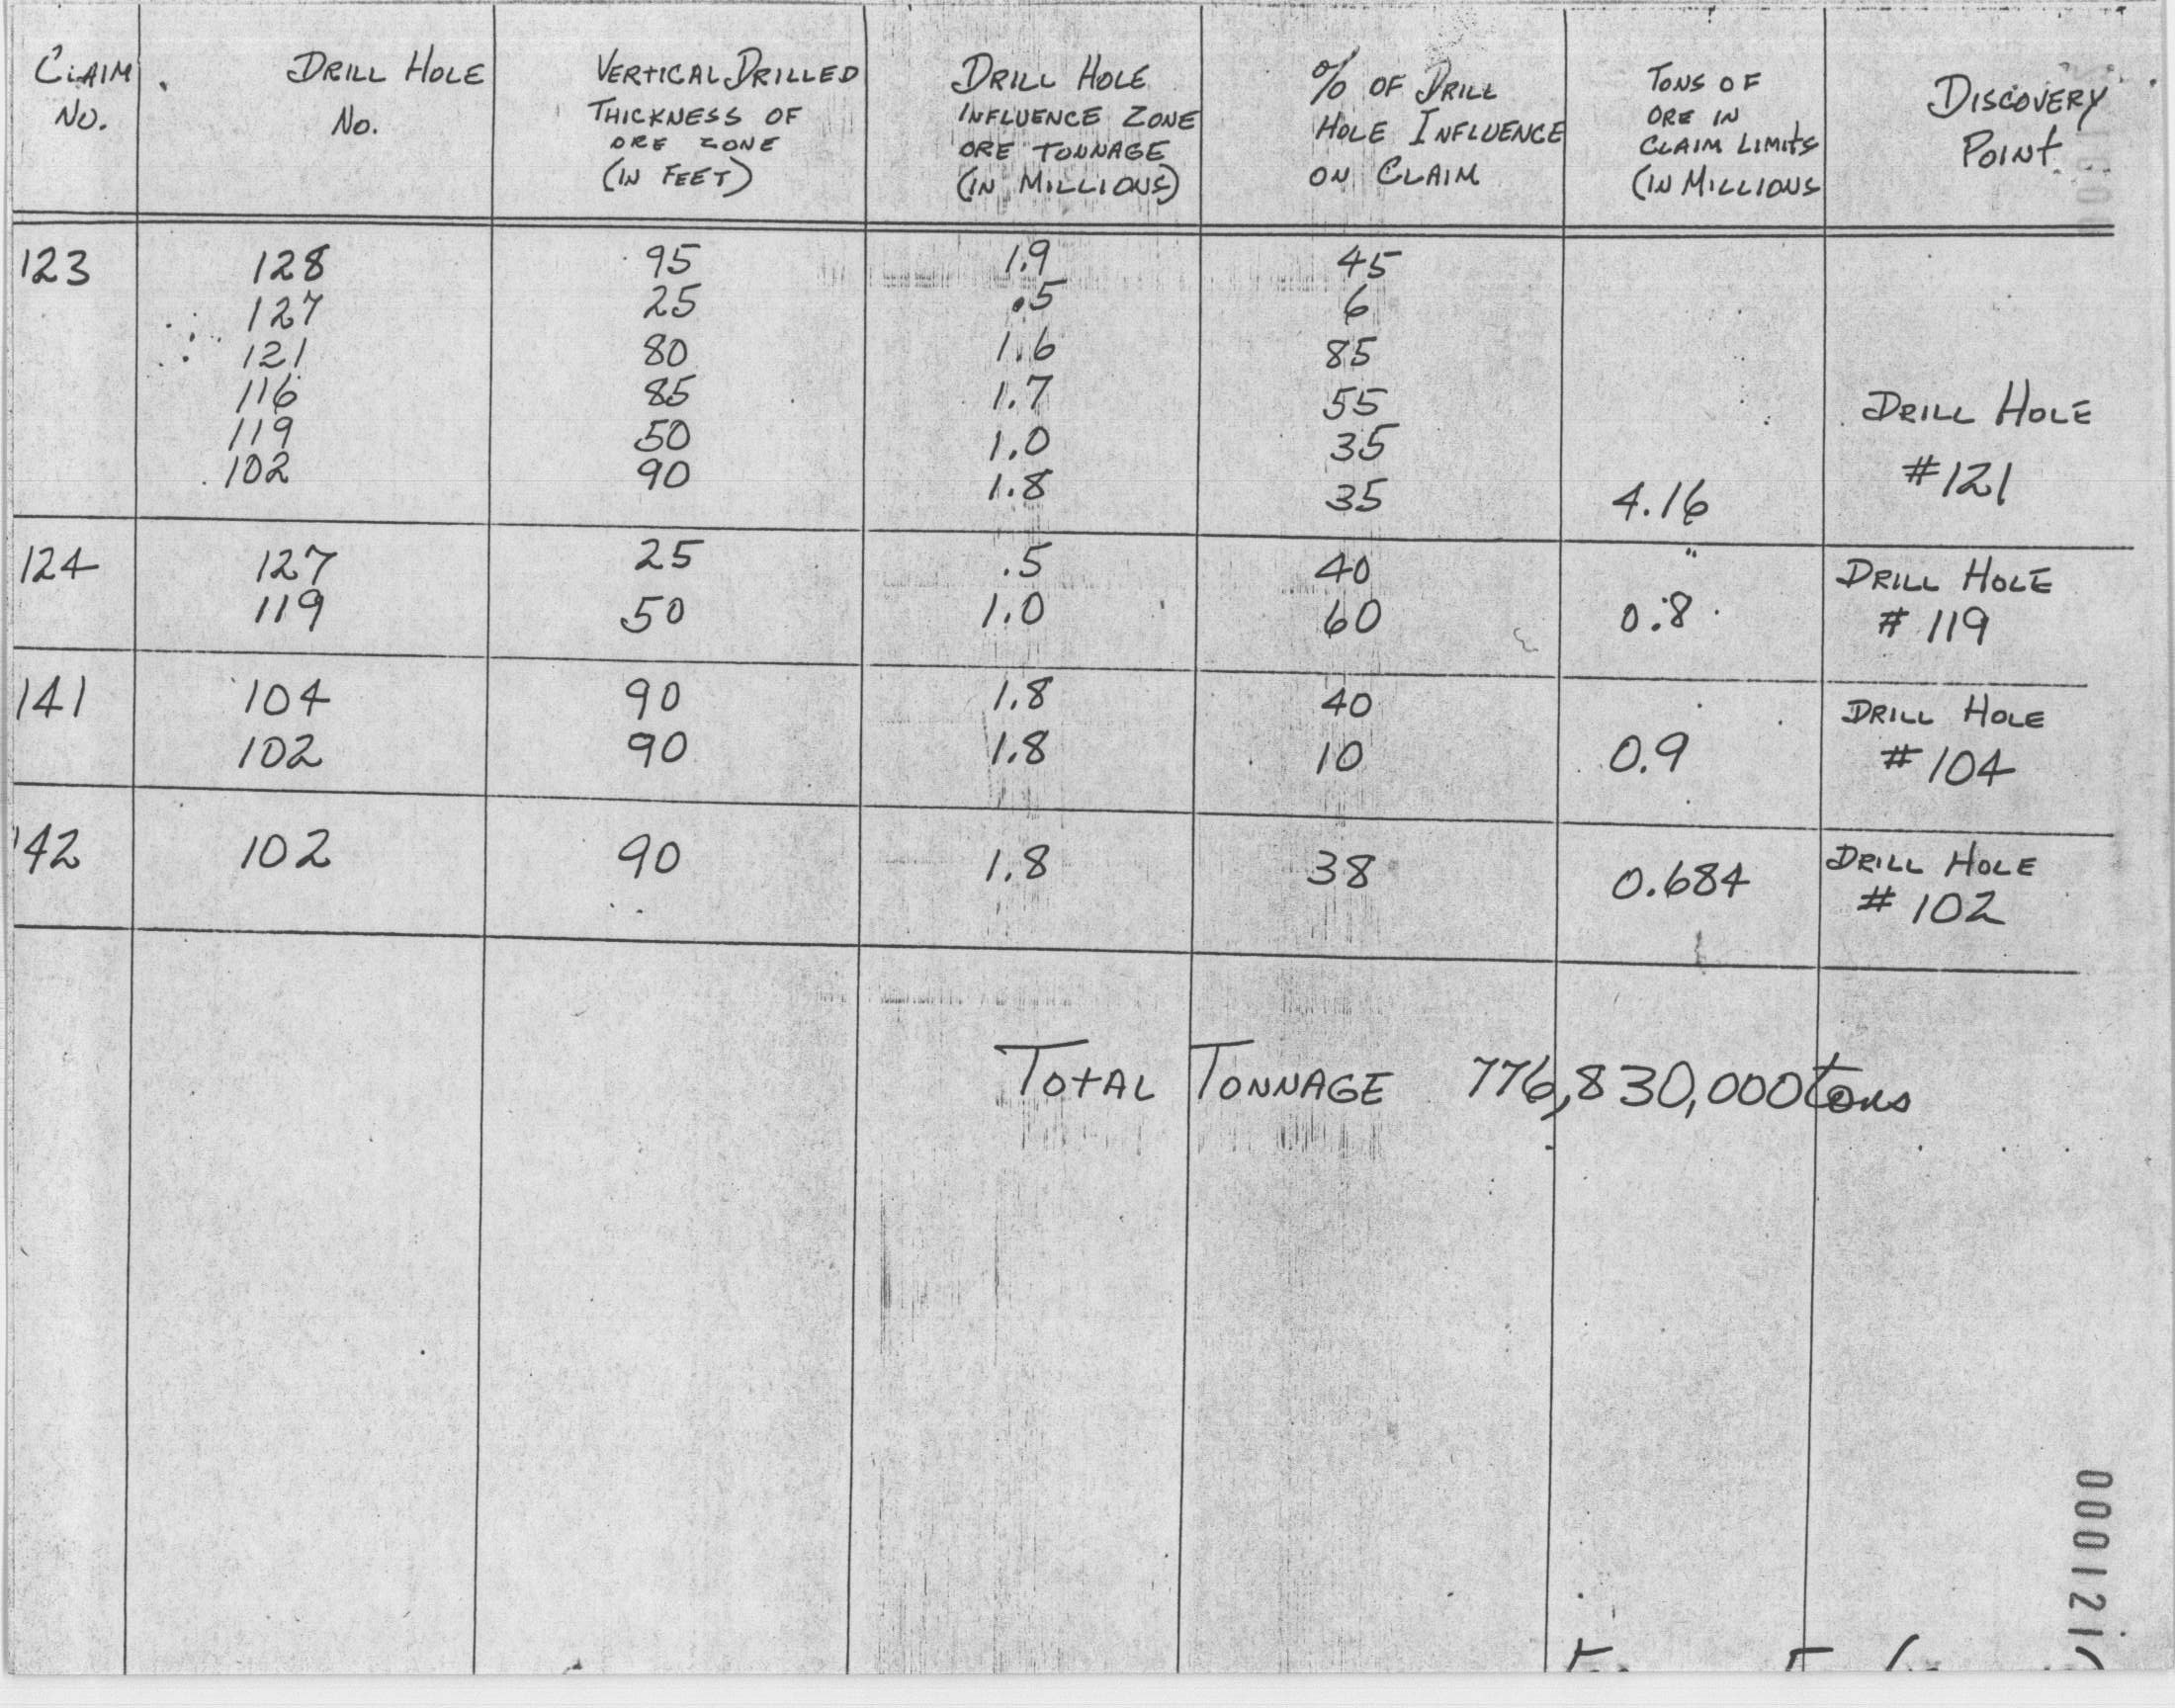 CLAIM No. DRILL HOLE No. VERTICAL DRILLED THICKNESS OF ORE ZONE (IN FEET) DRILL HOLE INFLUENCE ZONE ORE TONNAGE (IN MILLIONS) % OF DRILL HOLE INFLUENCE ON CLAIM TONS OF ORE IN CLAIM LIMITS (IN MILLIONS DISCOVERY POINT
123 128 95 1.9 45
127 25 .5 6
121 80 1.6 85
116 85 1.7 55
119 50 1.0 35
102 90 1.8 35 4.16 DRILL HOLE #121
124 127 25 .5 40
119 50 1.0 60 0.8 DRILL HOLE # 119
141 104 90 1.8 40
102 90 1.8 10 0.9 DRILL HOLE # 104
142 102 90 1.8 38 0.684 DRILL HOLE # 102
TOTAL TONNAGE 776,830,000 tons